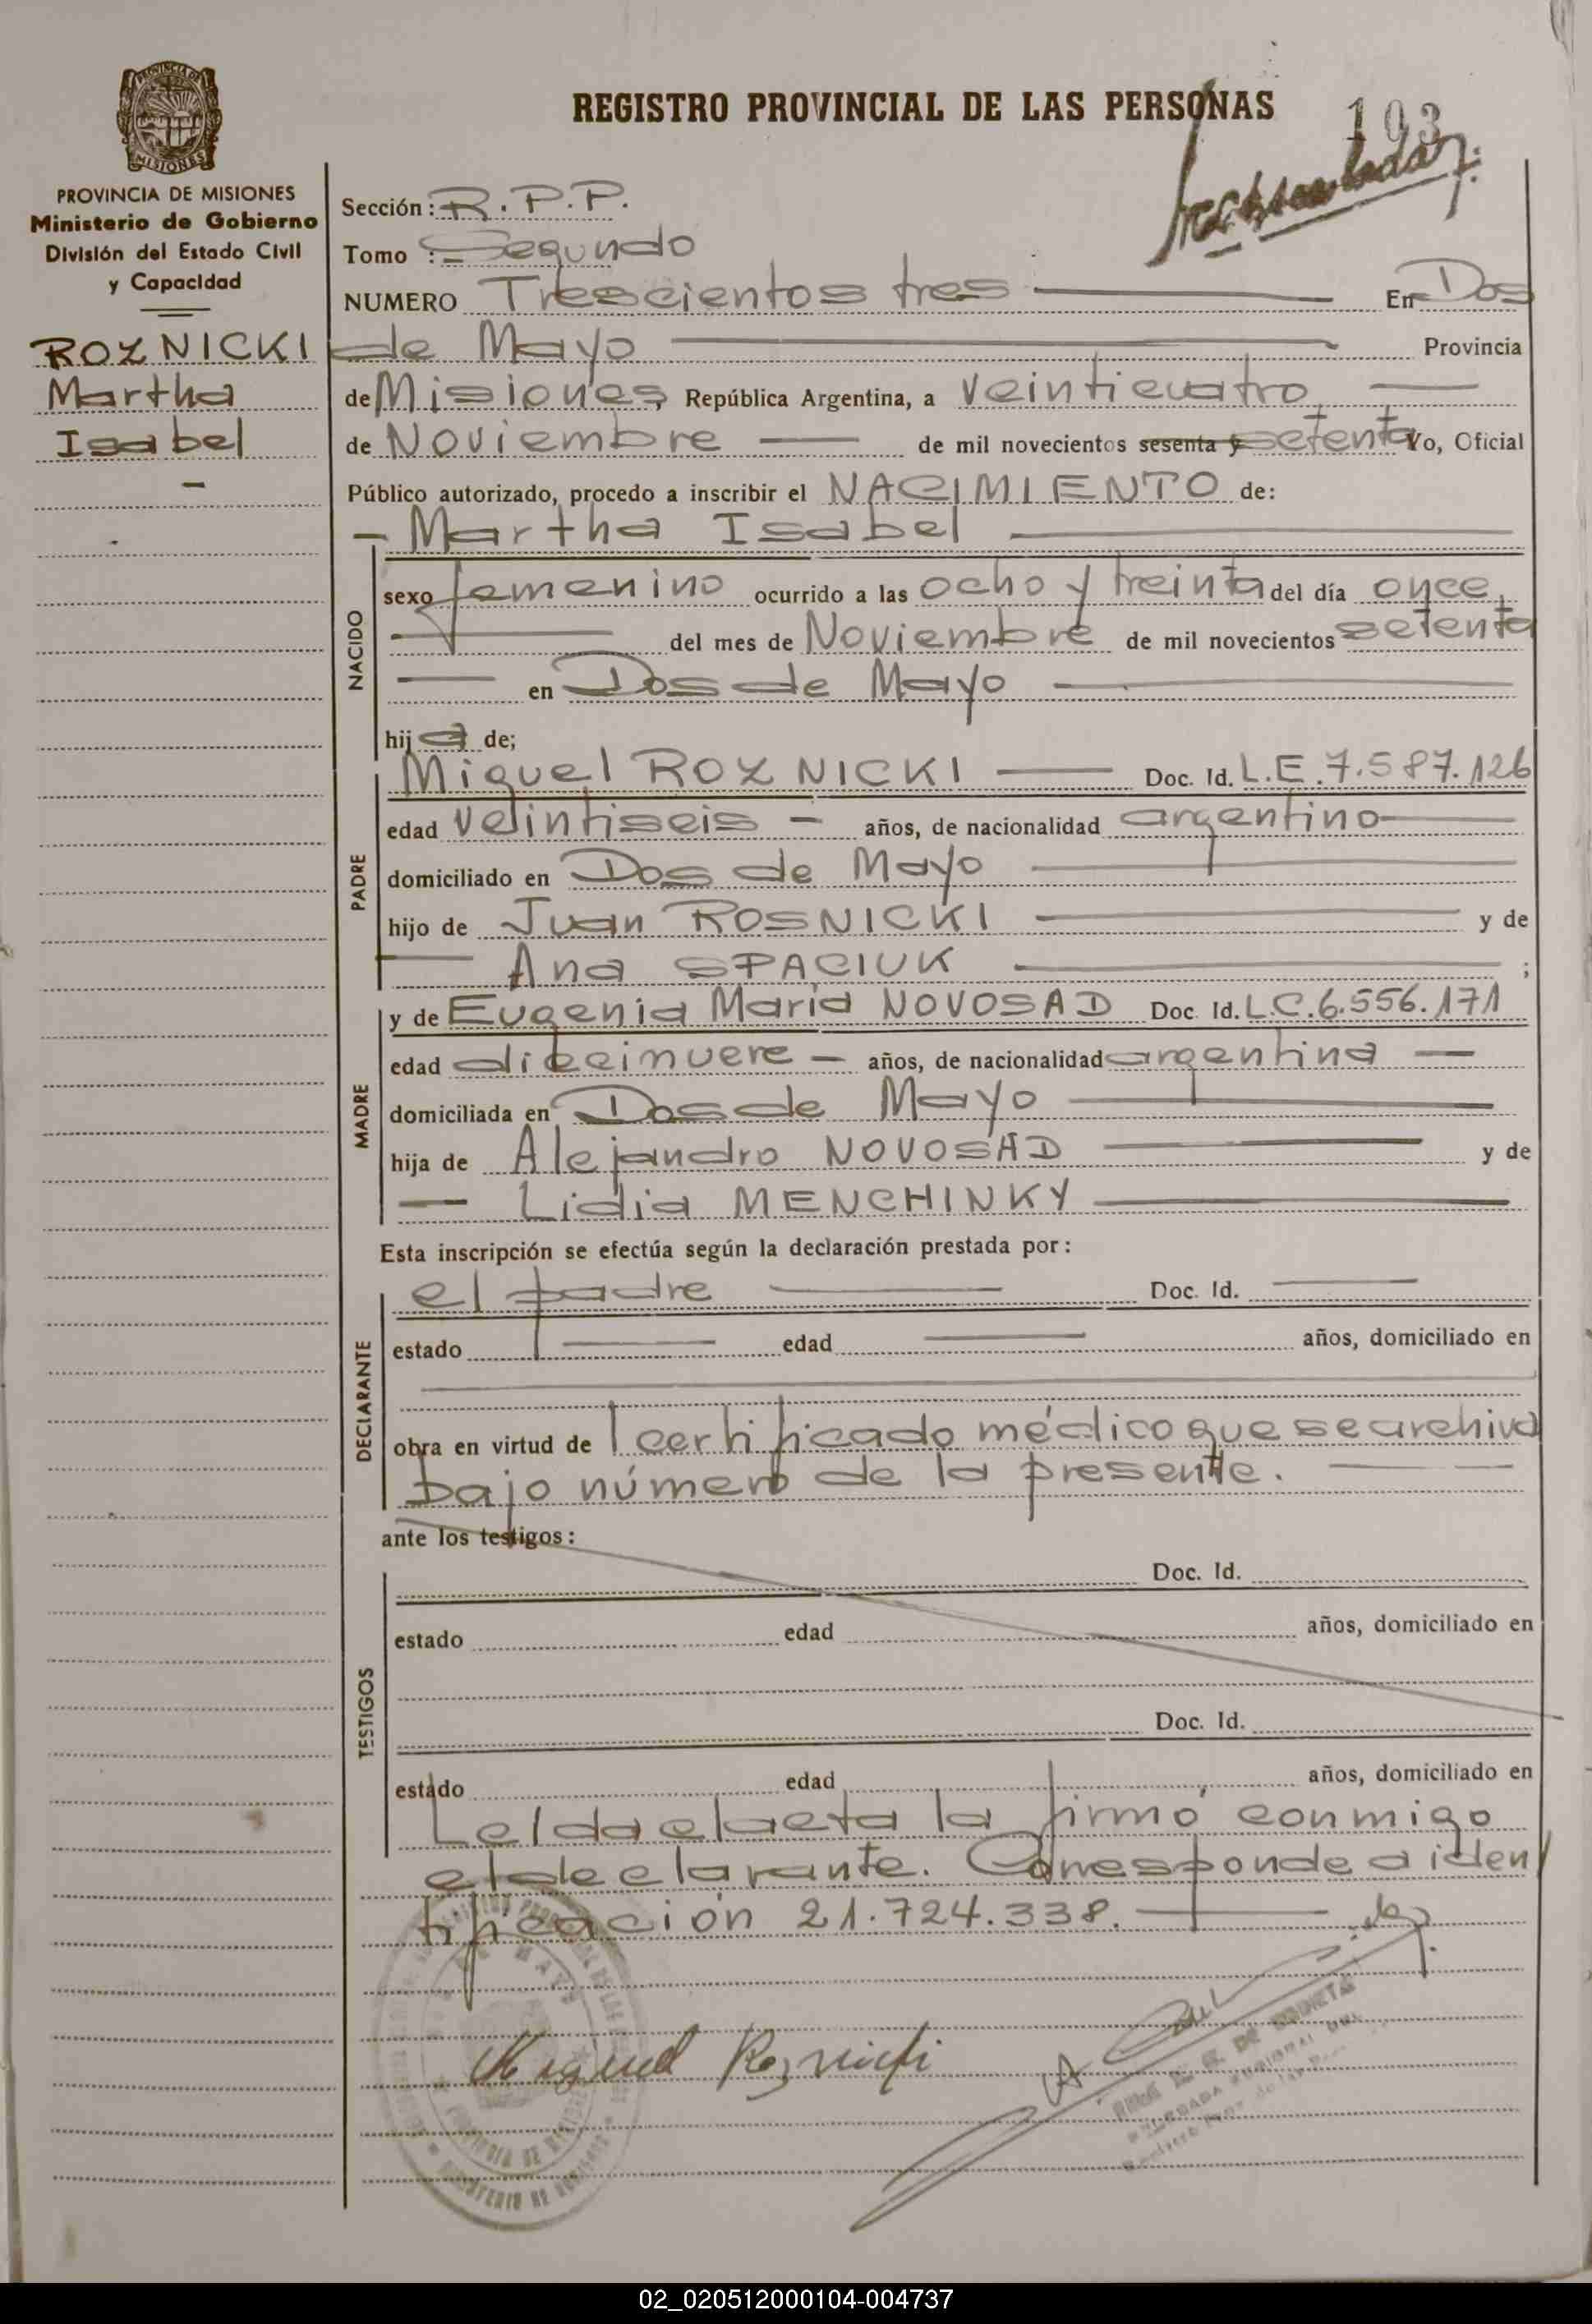 REGISTRO PROVINCIAL DE LAS PERSONAS
193
PROVINCIA DE MISIONES
Ministerio de Gobierno
División del Estado Civil
y Capacidad
ROZNICKI
Martha
Isabel
Sección: R.P.P.
Tomo : Segundo
NUMERO Trescientos tres En Dos
de Mayo Provincia
de Misiones, República Argentina, a veinticuatro
de Noviembre de mil novecientos sesenta y setenta Yo, Oficial
Público autorizado, procedo a inscribir el NACIMIENTO de:
Martha Isabel
NACIDO
sexo femenino ocurrido a las ocho y treinta del día once,
del mes de Noviembre de mil novecientos setenta
en Dos de Mayo
hija de;
PADRE
Miguel ROZNICKI Doc. Id. L.E.7.587.126
edad veintiseis años, de nacionalidad argentino
domiciliado en Dos de Mayo
hijo de Juan ROSNICKI y de
Ana SPACIUK ;
MADRE
y de Eugenia María NOVOSAD Doc. Id. L.C.6.556.171
edad años, de nacionalidad argentina
domiciliada en Dos de Mayo
hija de Alejandro NOVOSAD y de
Lidia MENCHINKY
Esta inscripción se efectúa según la declaración prestada por:
DECLARANTE
el padre Doc. Id.
estado edad años, domiciliado en
obra en virtud de l certificado médico que se archiva
bajo número de la presente.
ante los testigos:
TESTIGOS
Doc. Id.
estado edad años, domiciliado en
Doc. Id.
estado edad años, domiciliado en
Leída el acta la firmó conmigo
el declarante. Corresponde a iden
tificación 21.724.338.
Miguel Roznicki
02_020512000104-004737